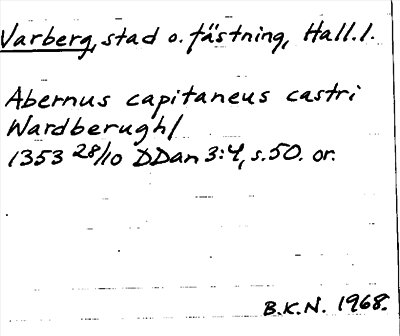 Varberg, stad o. fästning, Hall. l.
Abernus capitaneus castri
Wardberugh/
1353 28/10 DDan 3:4, s. 50. or.
B.K.N. 1968.